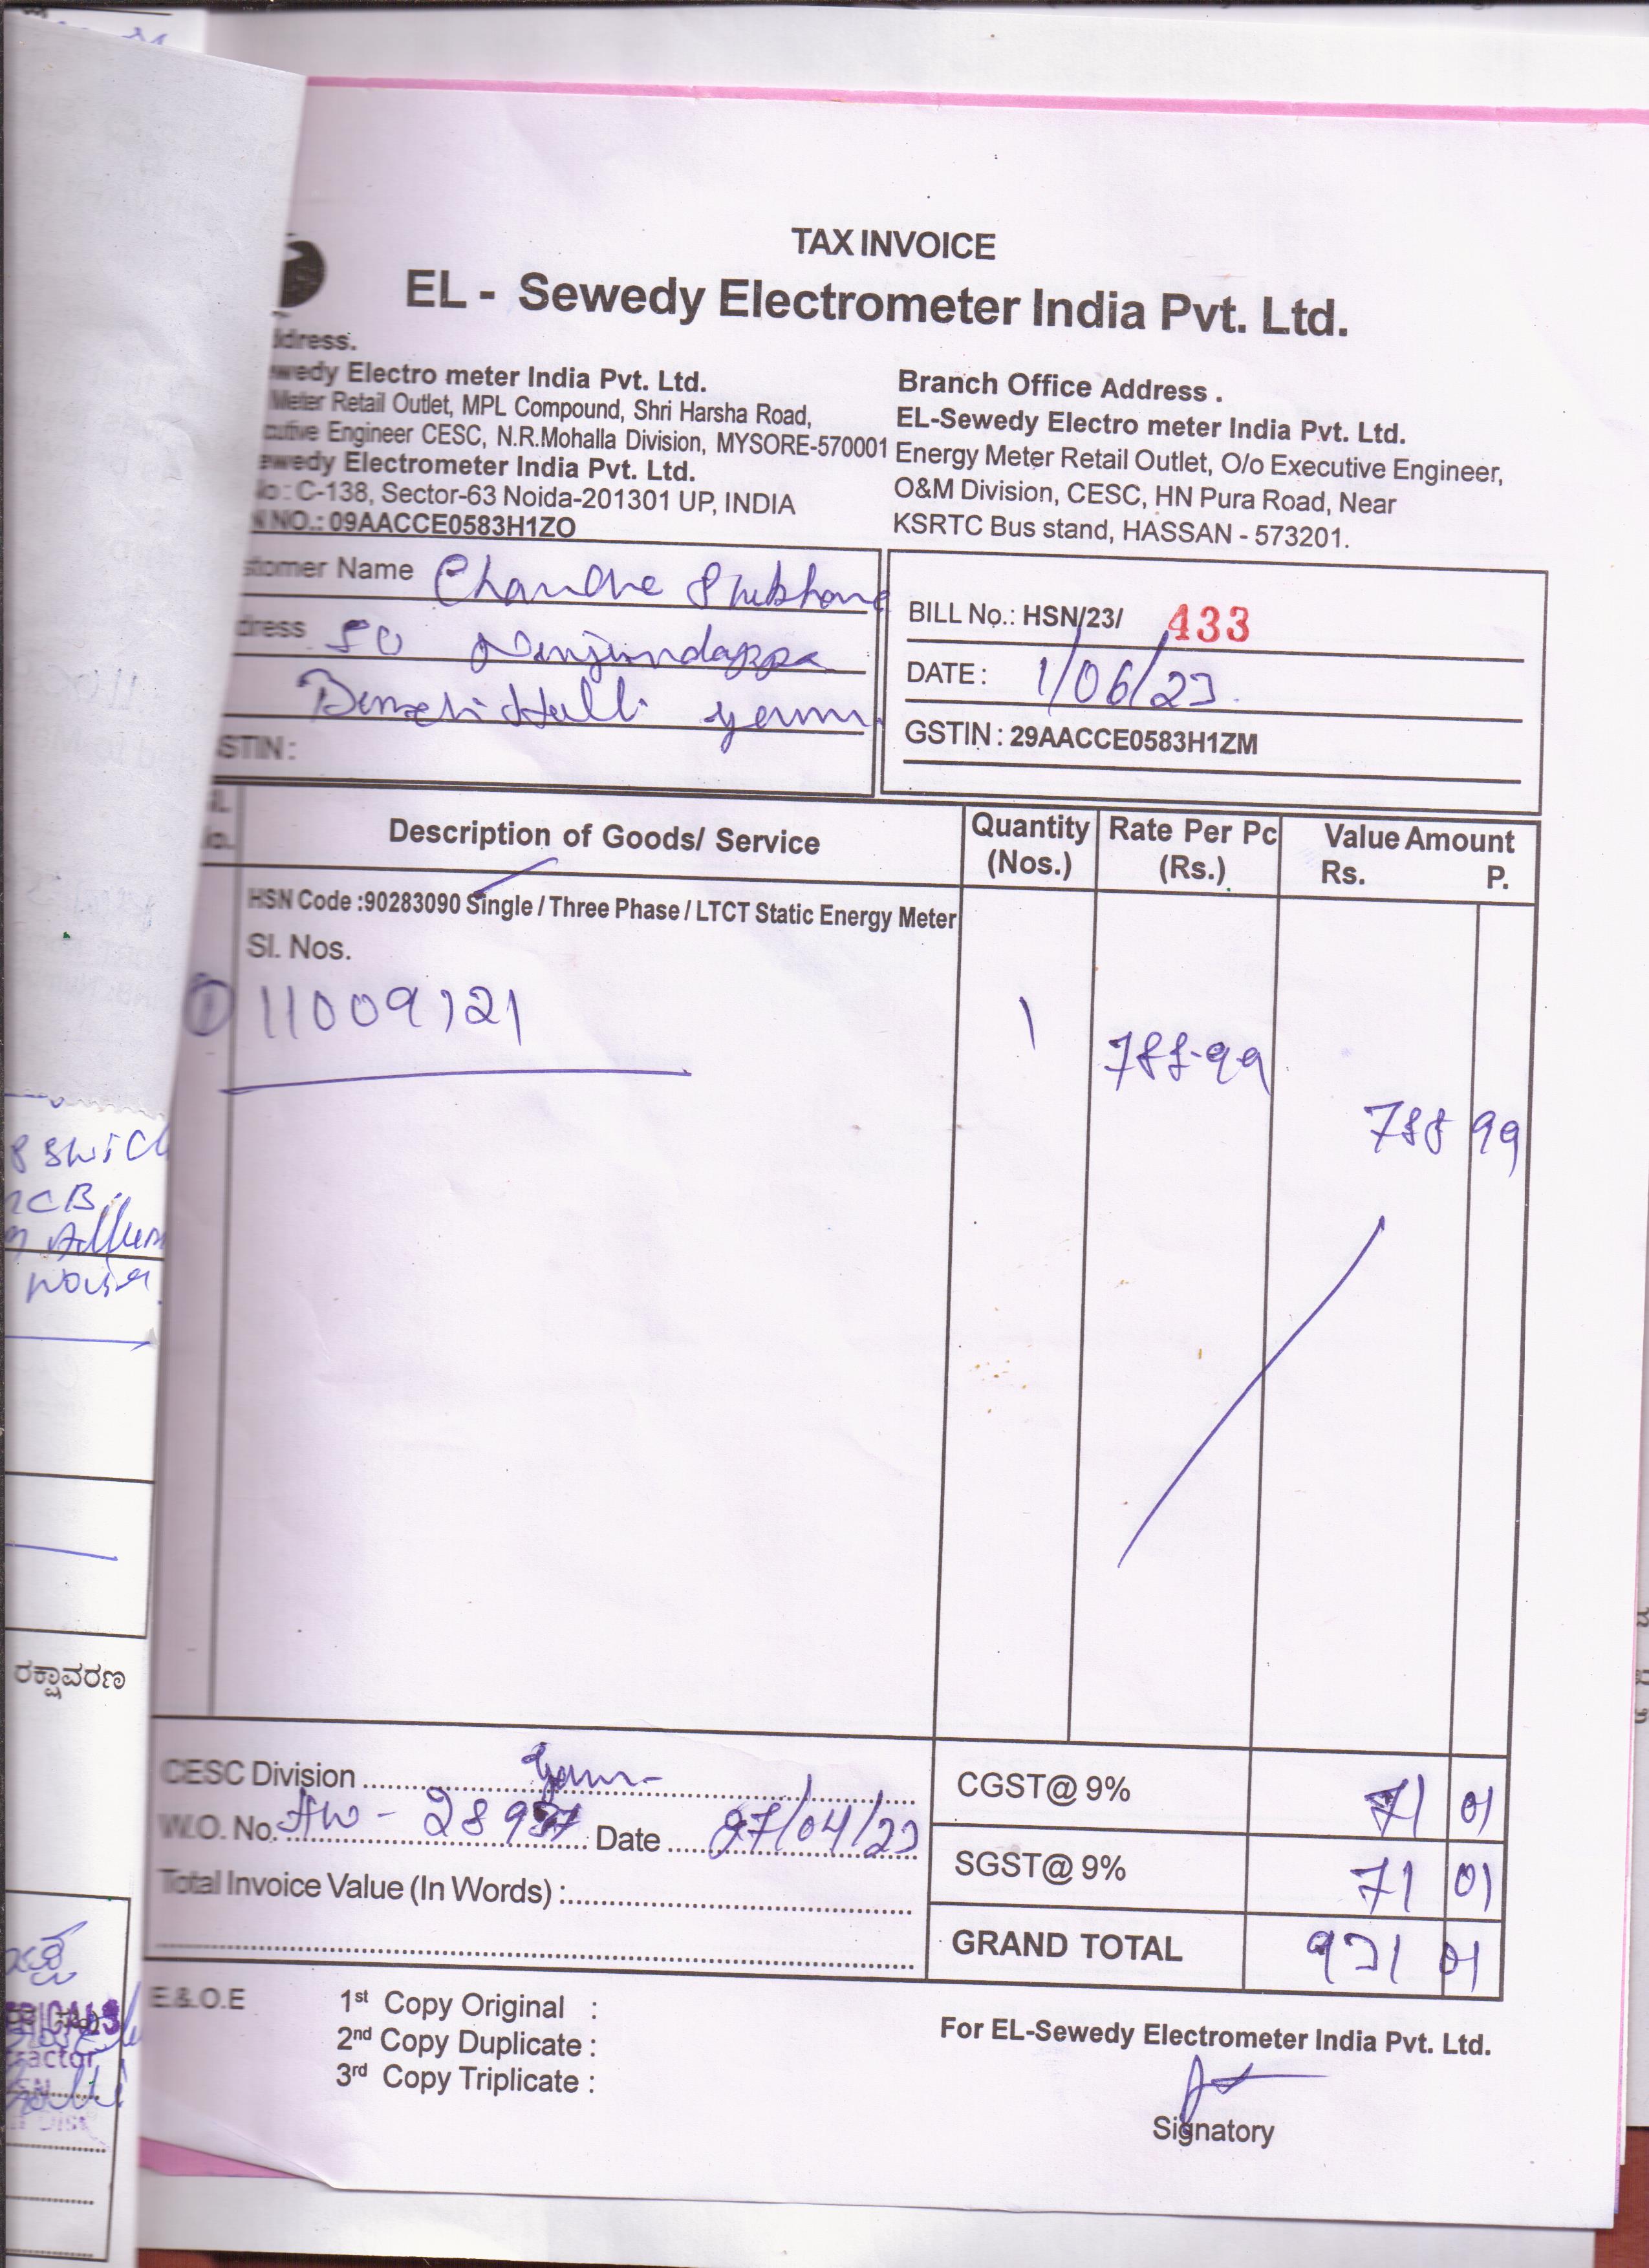 TAX INVOICE
EL - Sewedy Electrometer India Pvt. Ltd.
ddress.
ewedy Electro meter India Pvt. Ltd.
Meter Retail Outlet, MPL Compound, Shri Harsha Road,
cutive Engineer CESC, N.R.Mohalla Division, MYSORE-570001
ewedy Electrometer India Pvt. Ltd.
No : C-138, Sector-63 Noida-201301 UP, INDIA
N NO.: 09AACCE0583H1ZO
Branch Office Address .
EL-Sewedy Electro meter India Pvt. Ltd.
Energy Meter Retail Outlet, O/o Executive Engineer,
O&M Division, CESC, HN Pura Road, Near
KSRTC Bus stand, HASSAN - 573201.
stomer Name
dress Nanjundappa
STIN :
BILL No.: HSN/23/ 433
DATE : 1/06/23
GSTIN : 29AACCE0583H1ZM
SL No. Description of Goods/ Service Quantity (Nos.) Rate Per Pc (Rs.) Value Amount Rs. P.
HSN Code :90283090 Single / Three Phase / LTCT Static Energy Meter
Sl. Nos.
1 11009121 1 788-99
788 99
CESC Division
W.O. No. Date 27/04/23
Total Invoice Value (In Words) :
CGST@ 9% 71 01
SGST@ 9% 71 01
GRAND TOTAL 931 01
E.&.O.E
1st Copy Original :
2nd Copy Duplicate :
3rd Copy Triplicate :
For EL-Sewedy Electrometer India Pvt. Ltd.
Signatory
ರಕ್ಷಾವರಣ